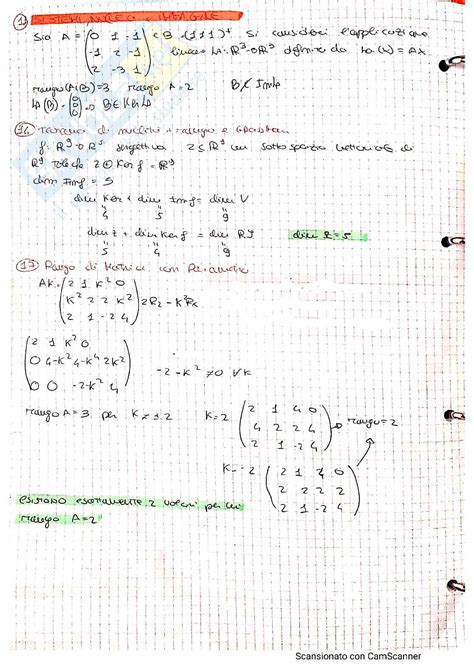 1 SISTEMI NUCLEO e IMMAGINE
Sia A = (0 1 -1 / -1 2 -1 / 2 -3 1) e B (1 1 1)ᵗ si consideri l'applicazione
lineare LA: R³→R³ definita da LA(v) = AX.
rango(A|B)=3, rango A=2 B∉ImLA
LA(B) = (0 0 0) → B∈Ker LA
f: R⁹→R⁵ suriettiva Z≤R⁹ un sottospazio vettoriale di
R⁹ tale che Z⊕Ker f = R⁹
dim Imf = 5
dim Ker + dim Imf = dim V
4 5 9
dim Z + dim Ker f = dim R⁹ dim Z = 5
5 4 9
Rango di Matrice con Parametro
AK = (2 1 K² 0 / K² 2 2 K² / 2 1 -2 4) 2R₂ - K²R₁
(2 1 K² 0 / 0 4-K² 4-K⁴ 2K² / 0 0 -2-K² 4) -2-K² ≠0 ∀K
rango A = 3 per K≠±2 K=2 (2 1 4 0 / 4 2 2 4 / 2 1 -2 4) → rango=2
K=-2 (2 1 4 0 / 2 2 2 2 / 2 1 -2 4)
esistono esattamente 2 valori per cui
rango A=2
Scansionato con CamScanner